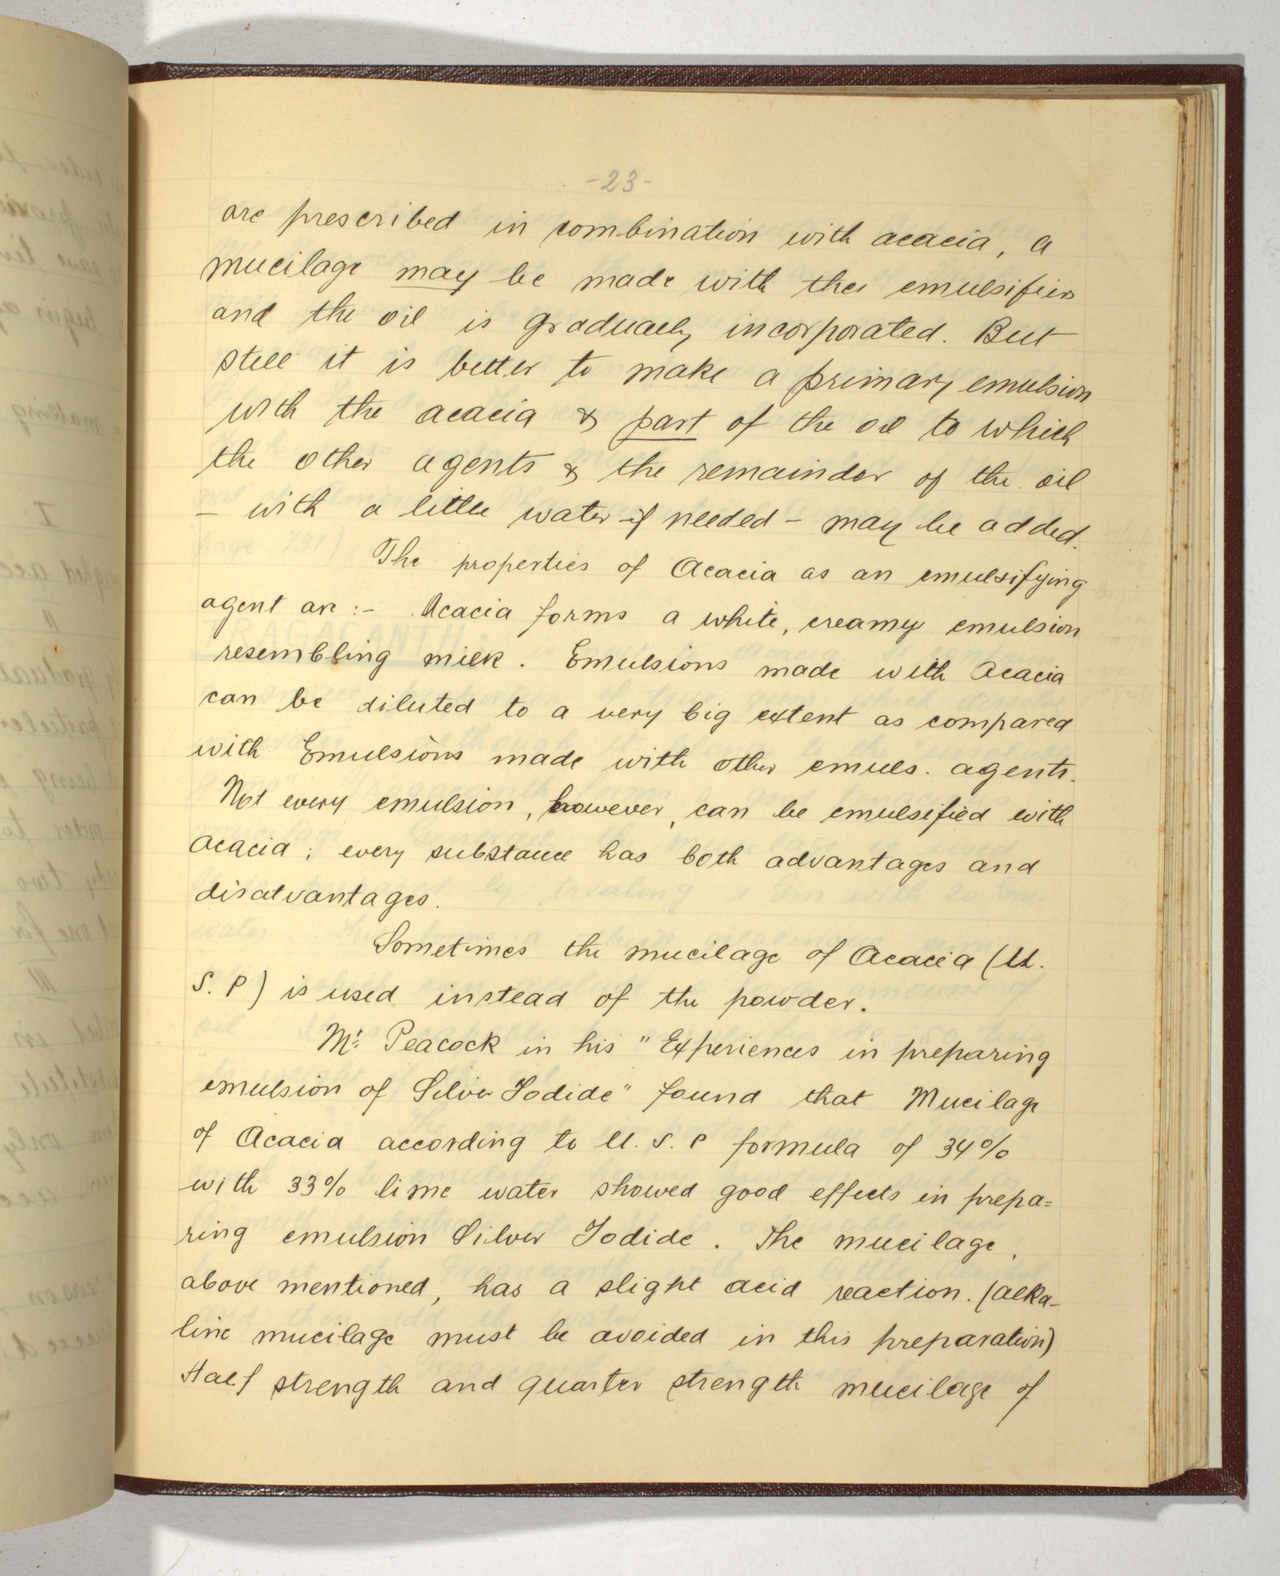 -23-
are prescribed in combination with acacia, a
mucilage may be made with the emulsifier
and the oil is gradually incorporated. But
still it is better to make a primary emulsion
with the acacia & part of the oil to which
the other agents & the remainder of the oil
- with a little water if needed - may be added.
The properties of Acacia as an emulsifying
agent are :- Acacia forms a white, creamy emulsion
resembling milk. Emulsions made with Acacia
can be diluted to a very big extent as compared
with Emulsions made with other emuls. agents.
Not every emulsion, however, can be emulsified with
Acacia; every substance has both advantages and
disatvantages.
Sometimes the mucilage of Acacia (U.
S. P) is used instead of the powder.
Mr. Peacock in his "Experiences in preparing
emulsion of Silver Iodide" found that Mucilage
of Acacia according to U. S. P formula of 34%
with 33% lime water showed good effects in prepa=
ring emulsion Silver Iodide. The mucilage,
above mentioned, has a slight acid reaction. (alka-
line mucilage must be avoided in this preparation)
Half strength and quarter strength mucilage of